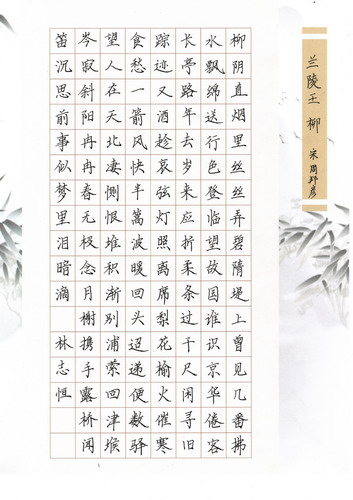 兰陵王 柳 宋 周邦彦
柳阴直烟里丝丝弄碧隋堤上曾见几番拂
水飘绵送行色登临望故国谁识京华倦客
长亭路年去岁来应折柔条过千尺闲寻旧
踪迹又酒趁哀弦灯照离席梨花榆火催寒
食愁一箭风快半篙波暖回头迢递便数驿
望人在天北凄恻恨堆积渐别浦萦回津堠
岑寂斜阳冉冉春无极念月榭携手露桥闻
笛沉思前事似梦里泪暗滴
林志恒